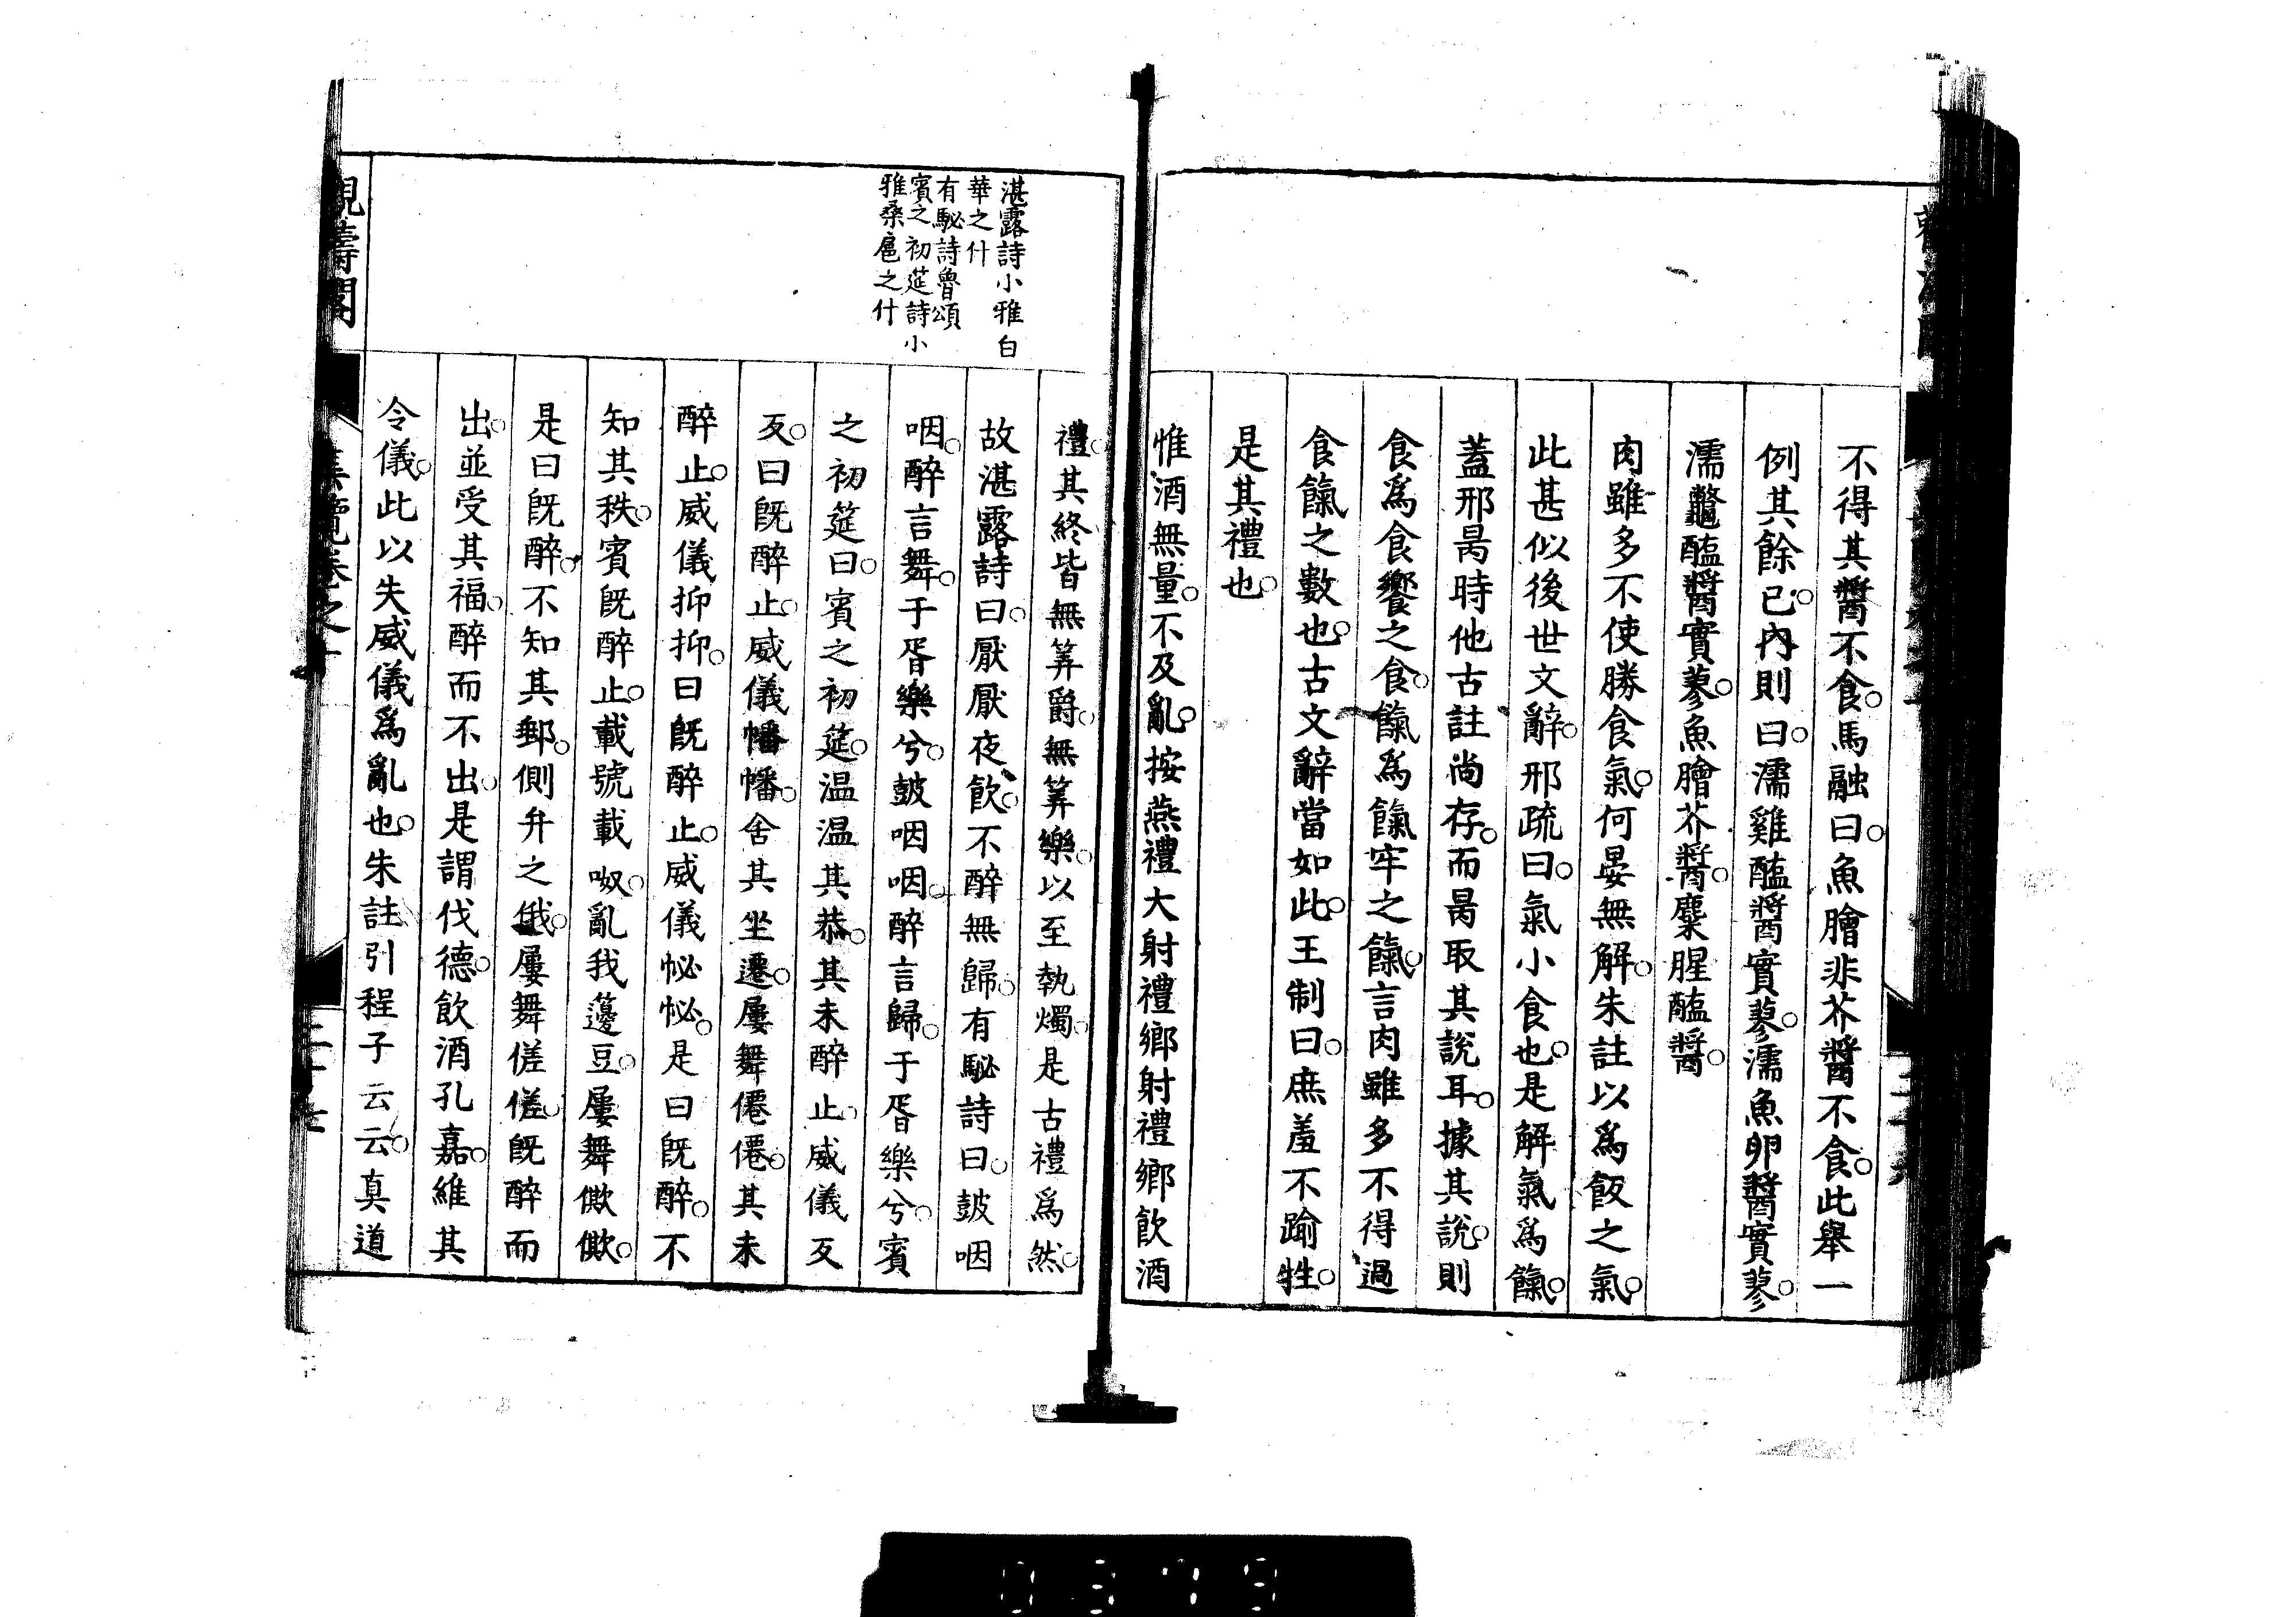 不得其醬不食。馬融曰。魚膾非芥醬不食。此舉一
例其餘已。內則曰。濡雞醢醬實蓼。濡魚卵醬實蓼。
濡鼈醢醬實蓼。魚膾芥醬。麋腥醢醬。
肉雖多不使勝食氣。何晏無解。朱註以爲飯之氣。
此甚似後世文辭。邢疏曰。氣小食也。是解氣爲餼。
蓋邢昺時他古註尚存。而昺取其說耳。據其說。則
食爲食饗之食。餼爲餼牢之餼。言肉雖多不得過
食餼之數也。古文辭當如此。王制曰。庶羞不踰牲。
是其禮也。
惟酒無量。不及亂。按燕禮大射禮鄉射禮鄉飲酒
湛露詩小雅白
華之什
有駜詩魯頌
賓之初筵詩小
雅桑扈之什
禮。其終皆無筭爵。無筭樂。以至執燭。是古禮爲然。
故湛露詩曰。厭厭夜飲。不醉無歸。有駜詩曰。鼓咽
咽。醉言舞。于胥樂兮。鼓咽咽。醉言歸。于胥樂兮。賓
之初筵曰。賓之初筵。温温其恭。其未醉止。威儀反
反。曰既醉止。威儀幡幡。舍其坐遷。屢舞僊僊。其未
醉止。威儀抑抑。曰既醉止。威儀怭怭。是曰既醉。不
知其秩。賓既醉止。載號載呶。亂我籩豆。屢舞僛僛。
是曰既醉。不知其郵。側弁之俄。屢舞傞傞。既醉而
出。並受其福。醉而不出。是謂伐德。飲酒孔嘉。維其
令儀。此以失威儀爲亂也。朱註引程子云云。真道
觀濤閣
集覽卷之